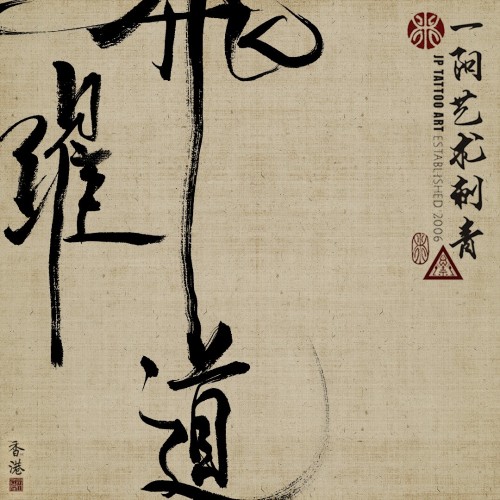 一阳艺术刺青
JP TATTOO ART ESTABLISHED 2006
道
躍
香港